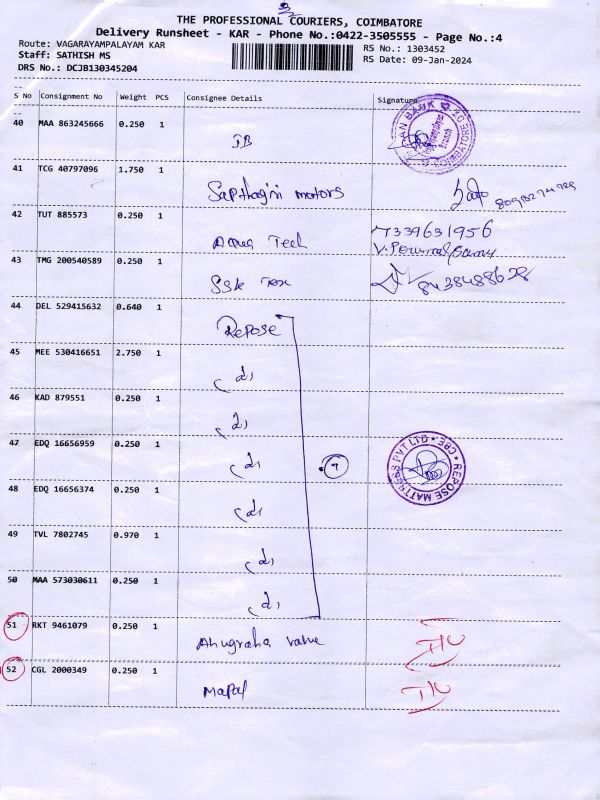 THE PROFESSIONAL COURIERS, COIMBATORE
Delivery Runsheet - KAR - Phone No.:0422-3505555 - Page No.:4
Route: VAGARAYAMPALAYAM KAR
RS No.: 1303452
Staff: SATHISH MS
RS Date: 09-Jan-2024
DRS No.: DCJB130345204
S No Consignment No Weight PCS Consignee Details Signature
40 MAA 863245666 0.250 1
41 TCG 40797096 1.750 1 Sapthagiri motors
42 TUT 885573 0.250 1 Tech 7339631956
43 TMG 200540589 0.250 1 SSK Tex 8438488628
44 DEL 529415632 0.640 1 Repose
45 MEE 530416651 2.750 1
46 KAD 879551 0.250 1
47 EDQ 16656959 0.250 1 7 REPOSE MATTRESS PVT LTD CBE
48 EDQ 16656374 0.250 1
49 TVL 7802745 0.970 1
50 MAA 573030611 0.250 1
51 RKT 9461079 0.250 1 Anugraha Valve
52 CGL 2000349 0.250 1 Mapal